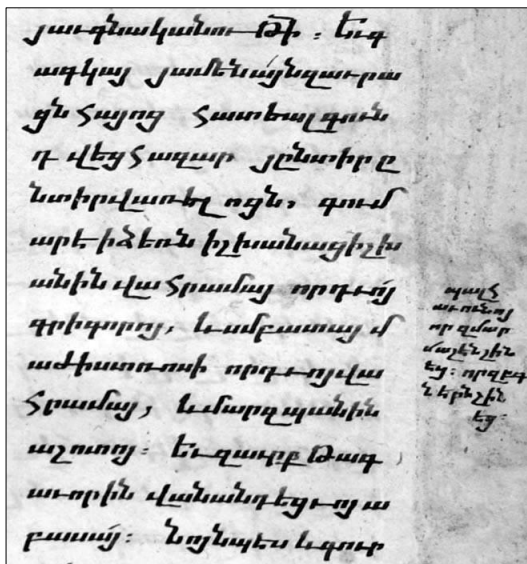 յաւգնականու թի : եւգ
ագկայ յամենայնզաւրա
ցն Հայոց Հատեալգուն
դ վեցՀազար յընտիր ը
նտիրվառել ոցն, գում
արէ իձեռն իշխանացիշխ
անին վաՀրամայ որդւոյ
գրիգորոյ, և սմբատայ մ
ագիստռոսի որդւոյվա
Հրամայ, և մարզպանին
աշոտոյ : Եւզաւրբ Թագ
աւորին վանանդեցւոյ ա
բասայ : Նոյնպես և գուր
պալՀ
աւունոյ
որ զմար
մաշէնշին
եց : որզբգ
ն երնշին
եց :